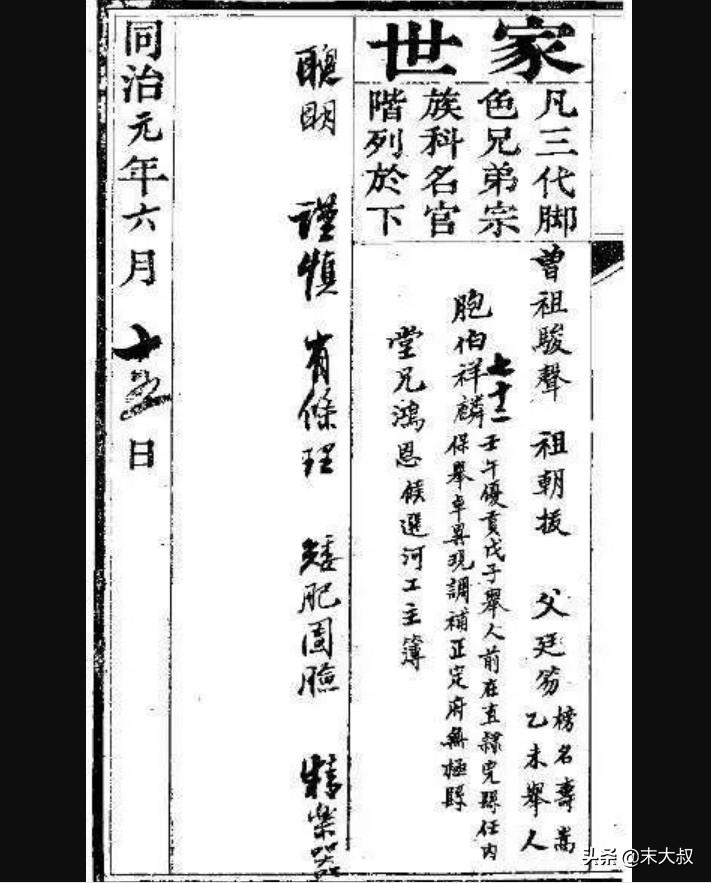 家世
凡三代脚
色兄弟宗
族科名官
階列於下
曾祖駿聲 祖朝援 父廷笏 榜名壽嵩
乙未舉人
胞伯祥麟 七十二 壬午優貢戊子舉人前在直隸完縣任內
保舉卓異現調補正定府無極縣
堂兄鴻恩候選河工主簿
聰明 謹慎 有條理 矮肥圓臉 精
同治元年六月 十 日
头条 @末大叔